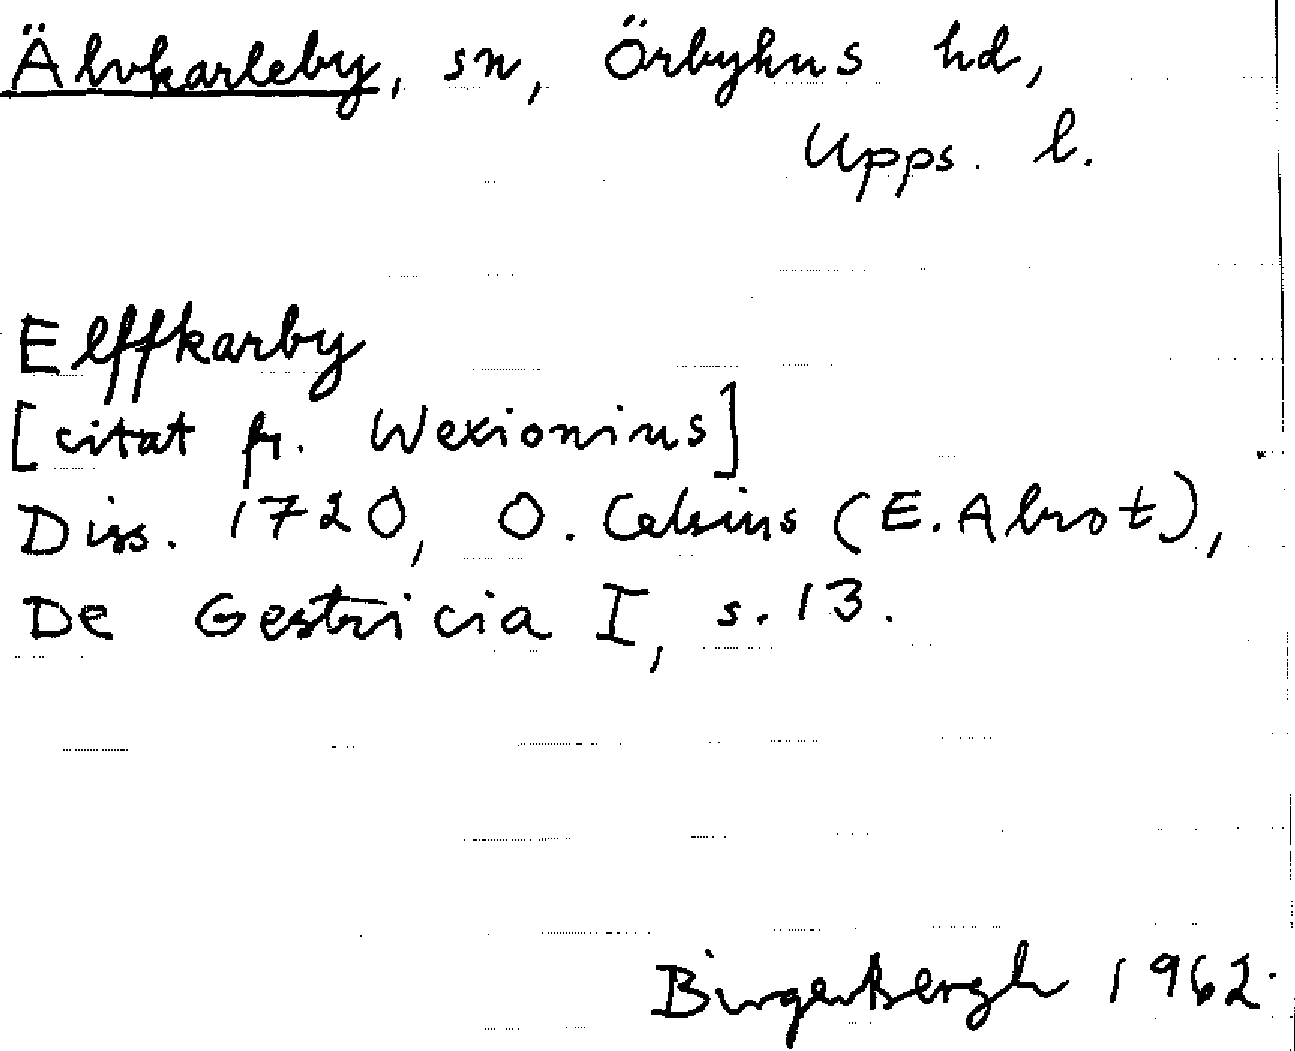 Älvkarleby, sn, Örbyhus hd,
Upps. l.
Elffkarby
[citat fr. Wexionius]
Diss. 1720, O. Celsius (E. Alrot),
De Gestricia I, s. 13.
Birger Bergh 1962.